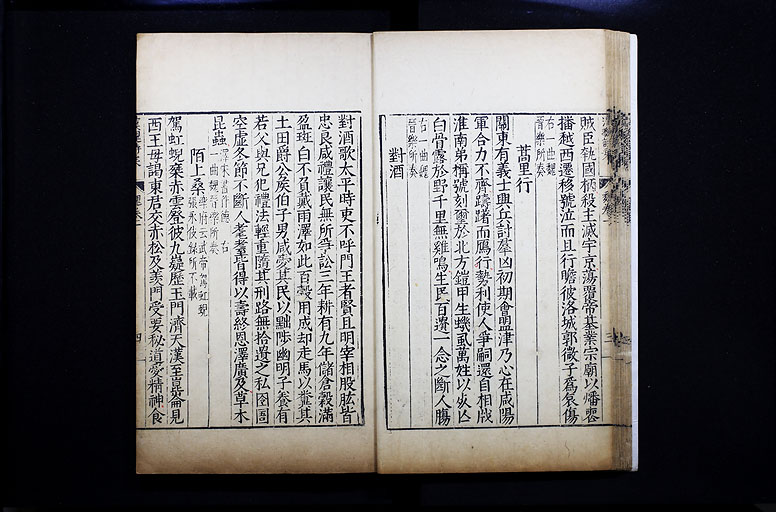 賊臣執國柄殺主滅宇京蕩覆帝基業宗廟以燔喪
播越西遷移號泣而且行瞻彼洛城郭微子爲哀傷
右一曲魏
晉樂所奏
蒿里行
關東有義士興兵討羣凶初期會盟津乃心在咸陽
軍合力不齊躊躇而鴈行勢利使人爭嗣還自相戕
淮南弟稱號刻璽於北方鎧甲生蟣虱萬姓以死亡
白骨露於野千里無雞鳴生民百遺一念之斷人腸
右一曲魏
晉樂所奏
對酒
對酒歌太平時吏不呼門王者賢且明宰相股肱皆
忠良咸禮讓民無所爭訟三年耕有九年儲倉穀滿
盈斑白不負戴雨澤如此百穀用成却走馬以糞其
土田爵公侯伯子男咸愛其民以黜陟幽明子養有
若父與兄犯禮法輕重隨其刑路無拾遺之私囹圄
空虛冬節不斷人耄耋皆得以壽終恩澤廣及草木
昆蟲
右
一曲魏晉樂所奏
陌上桑
樂府云武帝駕虹蜺
張永伎錄所不載
駕虹蜺乘赤雲登彼九嶷歷玉門濟天漢至崑崙見
西王母謁東君交赤松及羨門受要秘道愛精神食
四